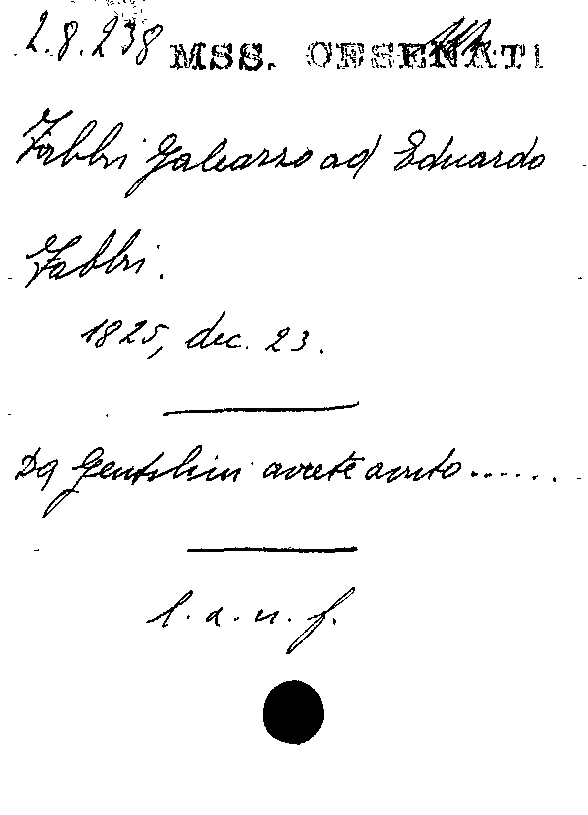 2.8.238 MSS. CESENATI
Fabbri Galeazzo ad Eduardo
Fabbri.
1825, dec. 23.
Da Gentilini avrete avuto......
l. a. u. f.